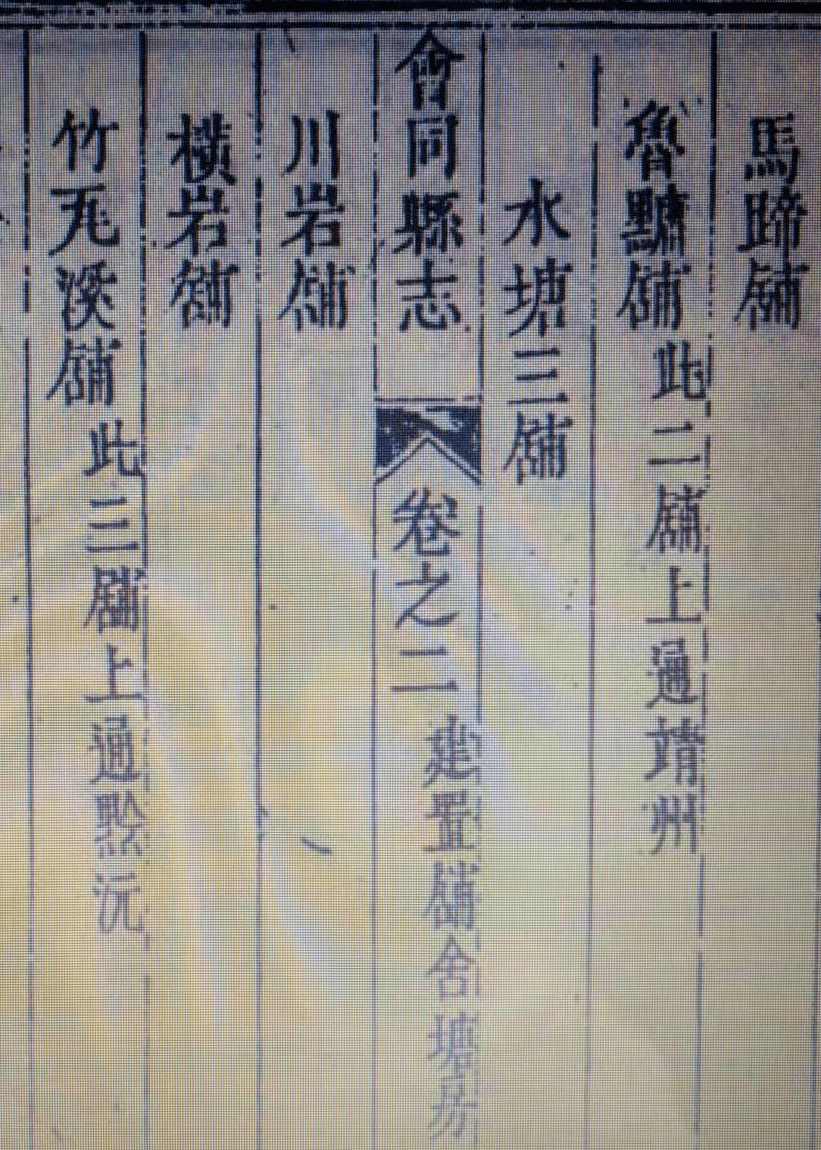 馬蹄舖
魯舖 此二舖上通靖州
水塘三舖
會同縣志 卷之二 建置舖舍塘房
川岩舖
橫岩舖
竹瓦溪舖 此三舖上通黔沅